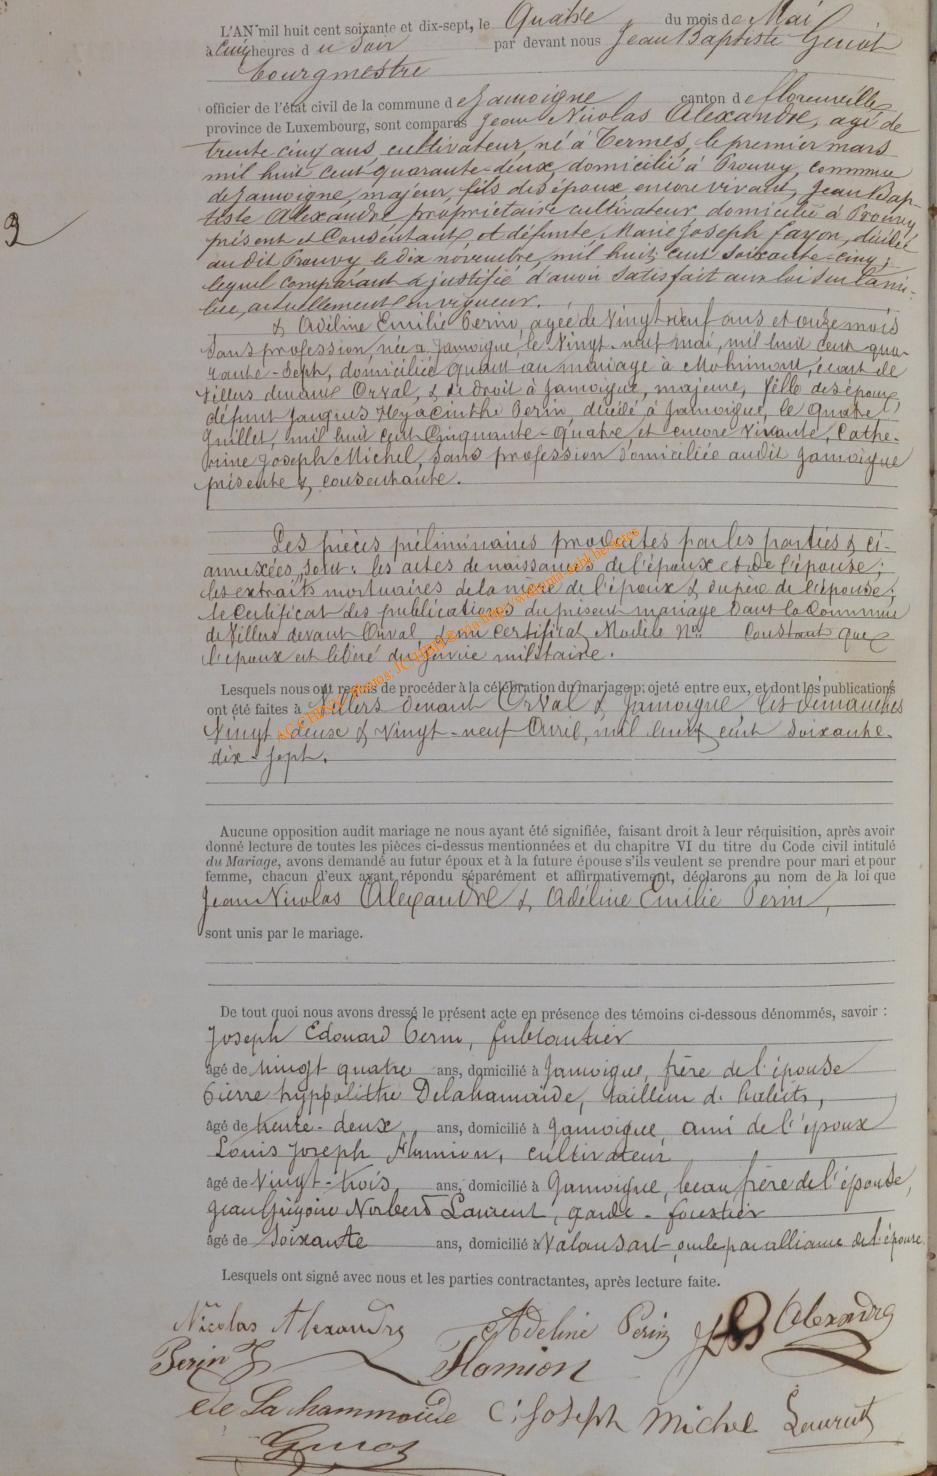 L'AN mil huit cent soixante et dix-sept, le Quatre du mois de Mai
à Cinq heures du Soir par devant nous Jean Baptiste Geniot
bourgmestre
officier de l'état civil de la commune de Jamoigne canton de florenville
province de Luxembourg, sont comparus Jean Nicolas Alexandre, agé de
trente cinq ans cultivateur, né à Termes, le premier mars
mil huit cent quarante-deux, domicilié à Prouvy, commune
de Jamoigne, majeur, fils des époux encore vivant, Jean Bap-
tiste Alexandre propriétaire cultivateur, domicilié à Prouvy,
présent et Consentant, et défunte Marie Joseph fayon, décédée
audit Prouvy le dix novembre, mil huit cent soixante-cinq;
lequel comparant a justifié d'avoir satisfait aux loi sur la mi-
lice, actuellement en vigueur.
& Adéline Emilie Perin, agée de Vingt neuf ans et onze mois
Sans profession née à Jamoigne, le Vingt-neuf mai, mil huit cent qua-
rante-Sept, domiciliée quant au mariage à Mohimont, écart de
Villers devant Orval, & de droit à Jamoigne, majeure, fille des époux
défunt Jacques Hyacinthe Perin, décédé à Jamoigne, le quatre
Juillet, mil huit cent Cinquante-quatre, et encore vivante, Cathe-
rine Joseph Michel, Sans profession domiciliée audit Jamoigne
présente & consentante.
Les pièces préliminaires produites par les parties & ci-
annexées, sont: les actes de naissances de l'époux et de l'épouse;
les extraits mortuaires de la mère de l'époux & du père de l'épouse;
le Certificat des publications du présent mariage dans la Commune
de Villers devant Orval, & un certificat Modèle No Constant que
l'époux est libéré du service militaire.
Lesquels nous ont requis de procéder à la célébration du mariage projeté entre eux, et dont les publications
ont été faites à Villers devant Orval & Jamoigne les dimanches
Vingt-deux & Vingt-neuf Avril, mil huit cent Soixante-
dix-Sept.
Aucune opposition audit mariage ne nous ayant été signifiée, faisant droit à leur réquisition, après avoir
donné lecture de toutes les pièces ci-dessus mentionnées et du chapitre VI du titre du Code civil intitulé
du Mariage, avons demandé au futur époux et à la future épouse s'ils veulent se prendre pour mari et pour
femme, chacun d'eux ayant répondu séparément et affirmativement, déclarons au nom de la loi que
Jean Nicolas Alexandre & Adéline Emilie Perin,
sont unis par le mariage.
De tout quoi nous avons dressé le présent acte en présence des témoins ci-dessous dénommés, savoir :
Joseph Edouard Perin, ferblantier
âgé de vingt quatre ans, domicilié à Jamoigne, frère de l'épouse
Pierre hyppolithe Delahamaide, tailleur d'habits,
âgé de trente-deux, ans, domicilié à Jamoigne, ami de l'époux
Louis Joseph Flamion, cultivateur
âgé de Vingt-trois, ans, domicilié à Jamoigne, beau frère de l'épouse,
Jean Grégoire Norbert Laurent, garde-forestier
âgé de Soixante ans, domicilié à Valansart, oncle par alliance de l'épouse
Lesquels ont signé avec nous et les parties contractantes, après lecture faite.
Nicolas Alexandre Adeline Perin JB Alexandre
Perin J Flamion
de La hammaide C: Joseph Michel Laurent